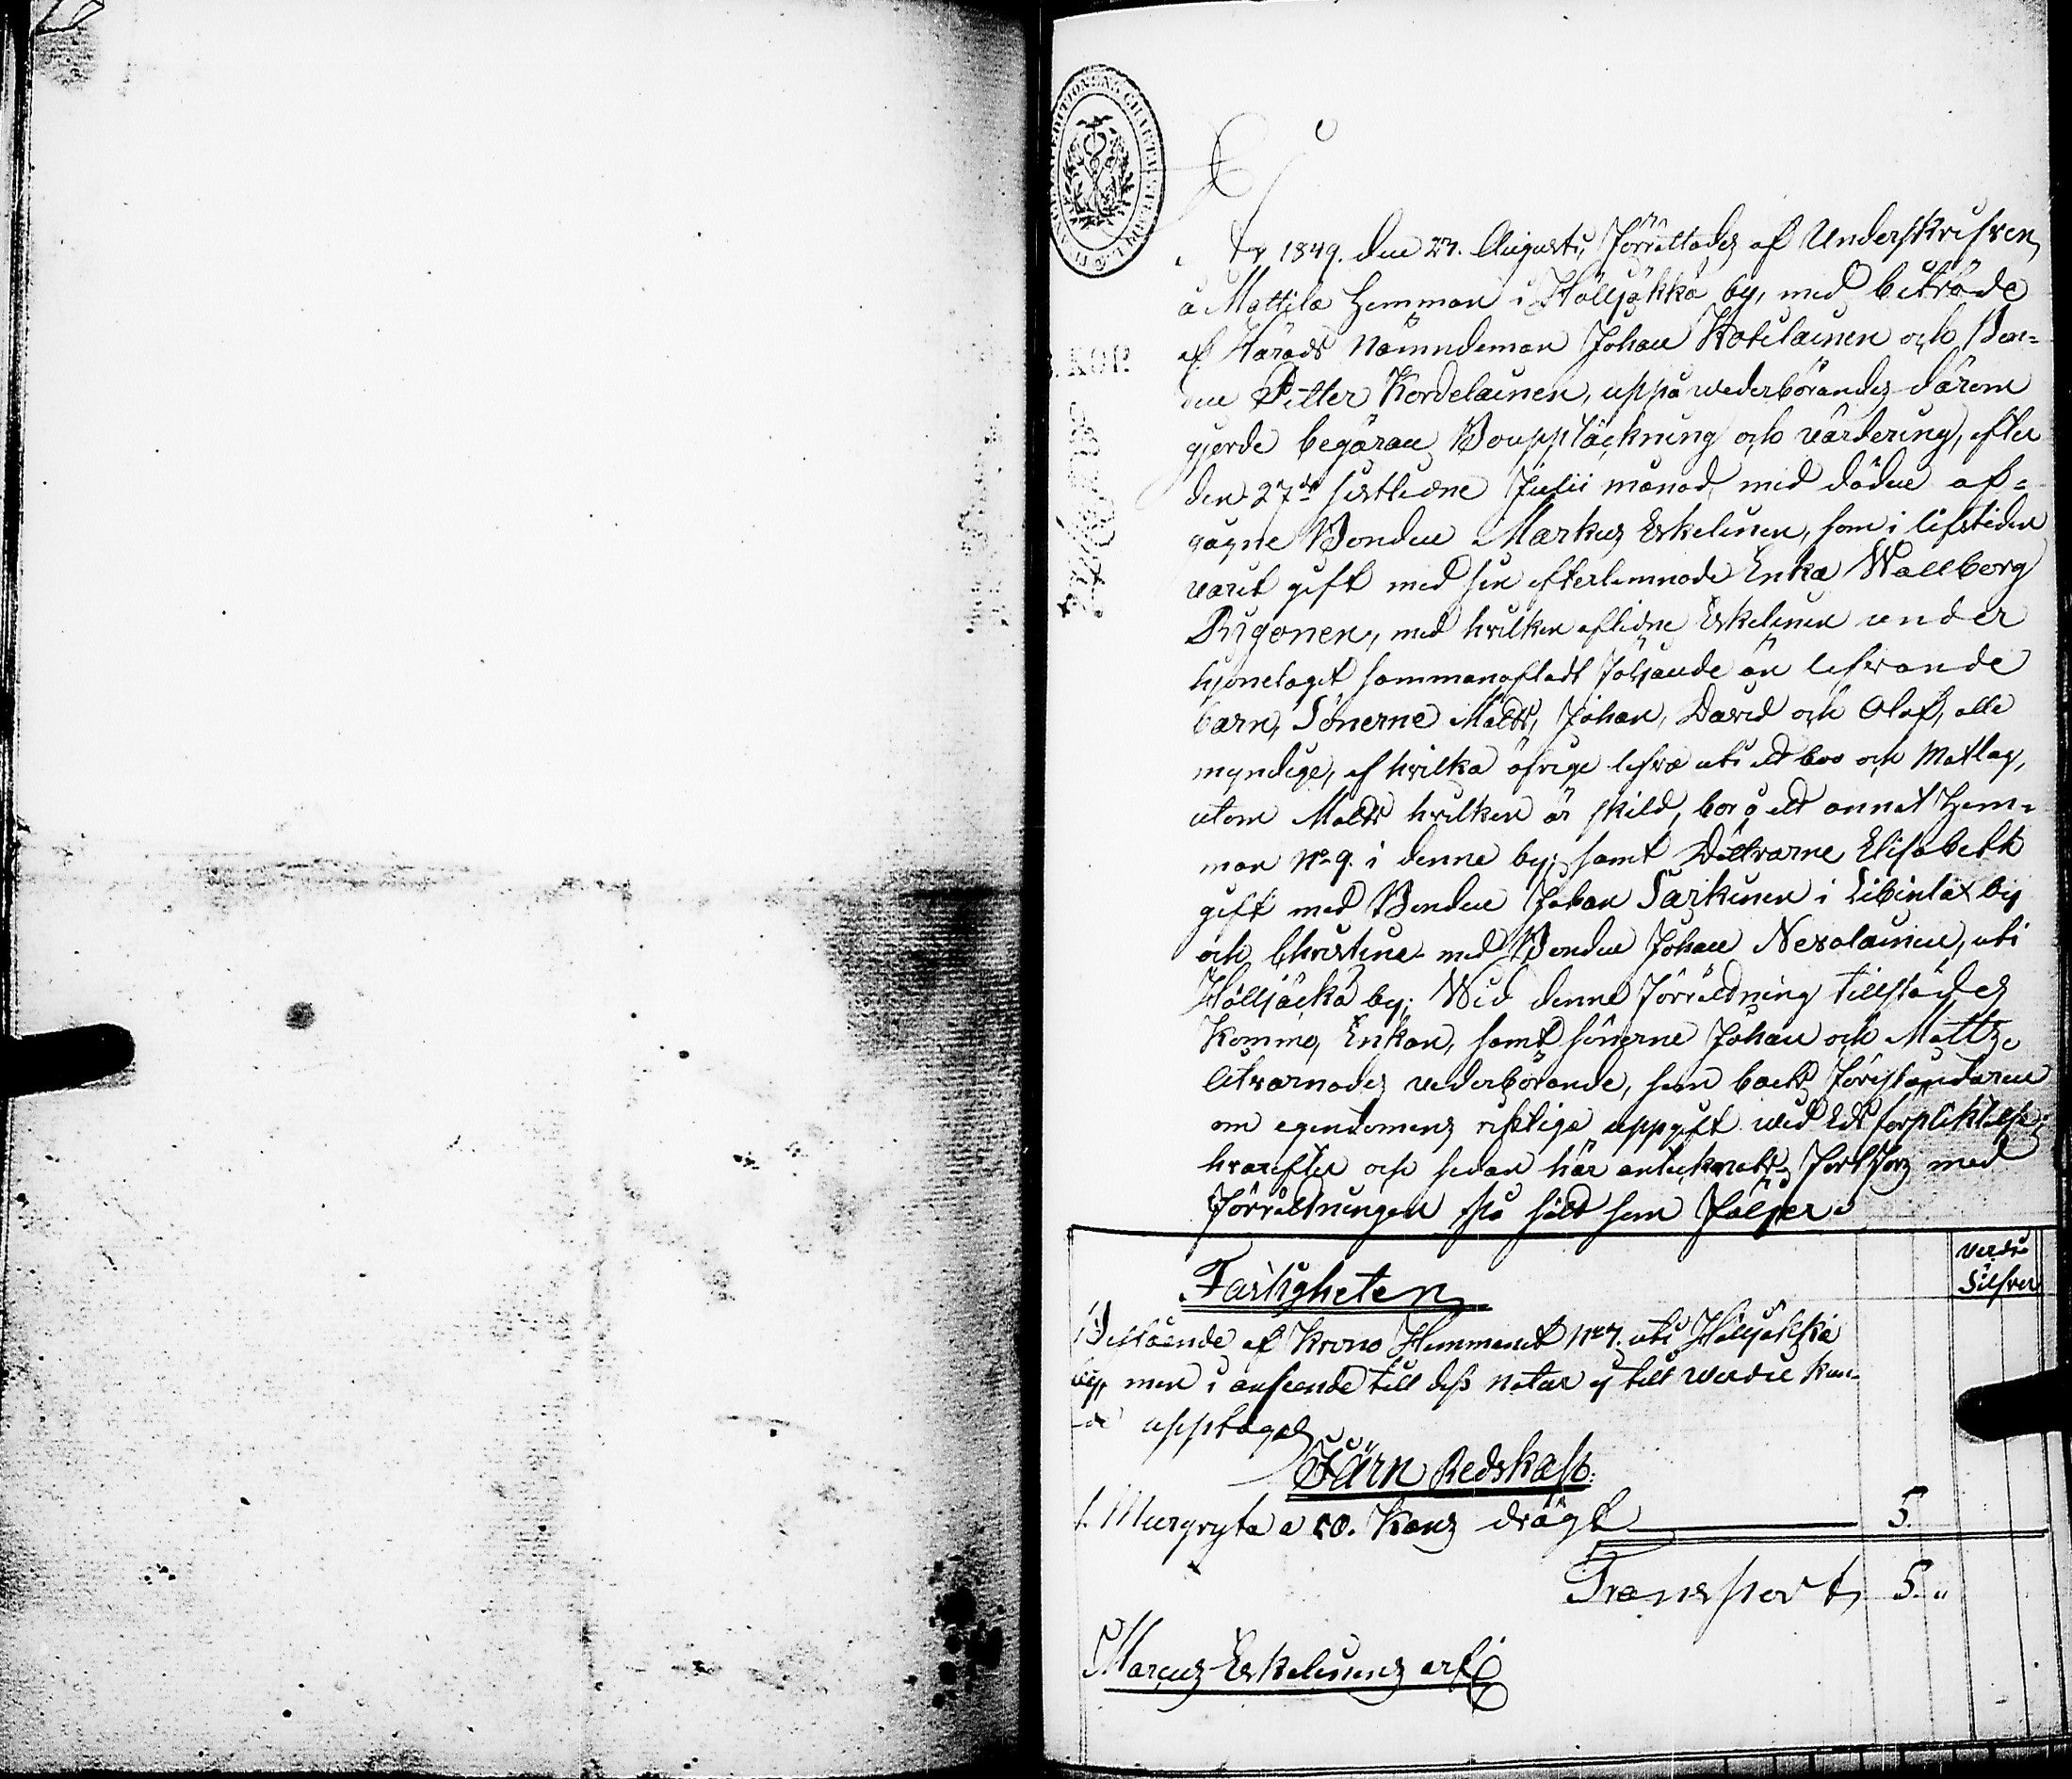 År 1849. den 27. Augusti, förrättades af Underskrifven,
å Mattila Hemman i Höljäkkä by, med biträde
af Härads Nämndeman Johan Kotilainen och Bon-
den Petter Kordelainen, uppå wederbörandes därom
gjorde begäran, Bouppläckning och värdering, efter
den 27de sistledne Julii månad med döden af-
gågne Bonden Markus Eskelinen, som i lifstiden
varit gift med sin efterlemnade Enka Wallborg
med hvilken aflidne Eskelinen under
hjonelaget sammanafladt följande än lefvande
barn, Sönerne Matts, Johan, David och Olof, alle
myndige, af hvilka öfrige lefva uti ett boo och Matlag,
utom Matts hvilken är skild, bor å ett annat Hem-
man No 9. i denne by; samt Döttrarne Elisabeth
gift med Bonden Johan Särkinen i Libinlax by
och Christina med Bonden Johan Nevalainen, uti
Höljäckä by; Wid denne förrättning tillstädes
Kommo, Enkan, samt sönerne Johan och Matts,
åtvarnades vederbörande, som boets föreståndaren
om egendomens riktiga uppgift wid Ed förpliktelse;
hvarefter och sedan här antecknats, fortfors med
förrättningen på sätt som följer
Värde
Silfver
Fastigheten
Bestående af Krono Hemmanet No 7. uti Höljäkkä
by, men i anseende till dess natur ej till werde kun-
de upptagas
Järn Redskap.
1. Murgryta a 20. Kans drägt 5.
Transport 5. "
Marcus Eskelinens arf